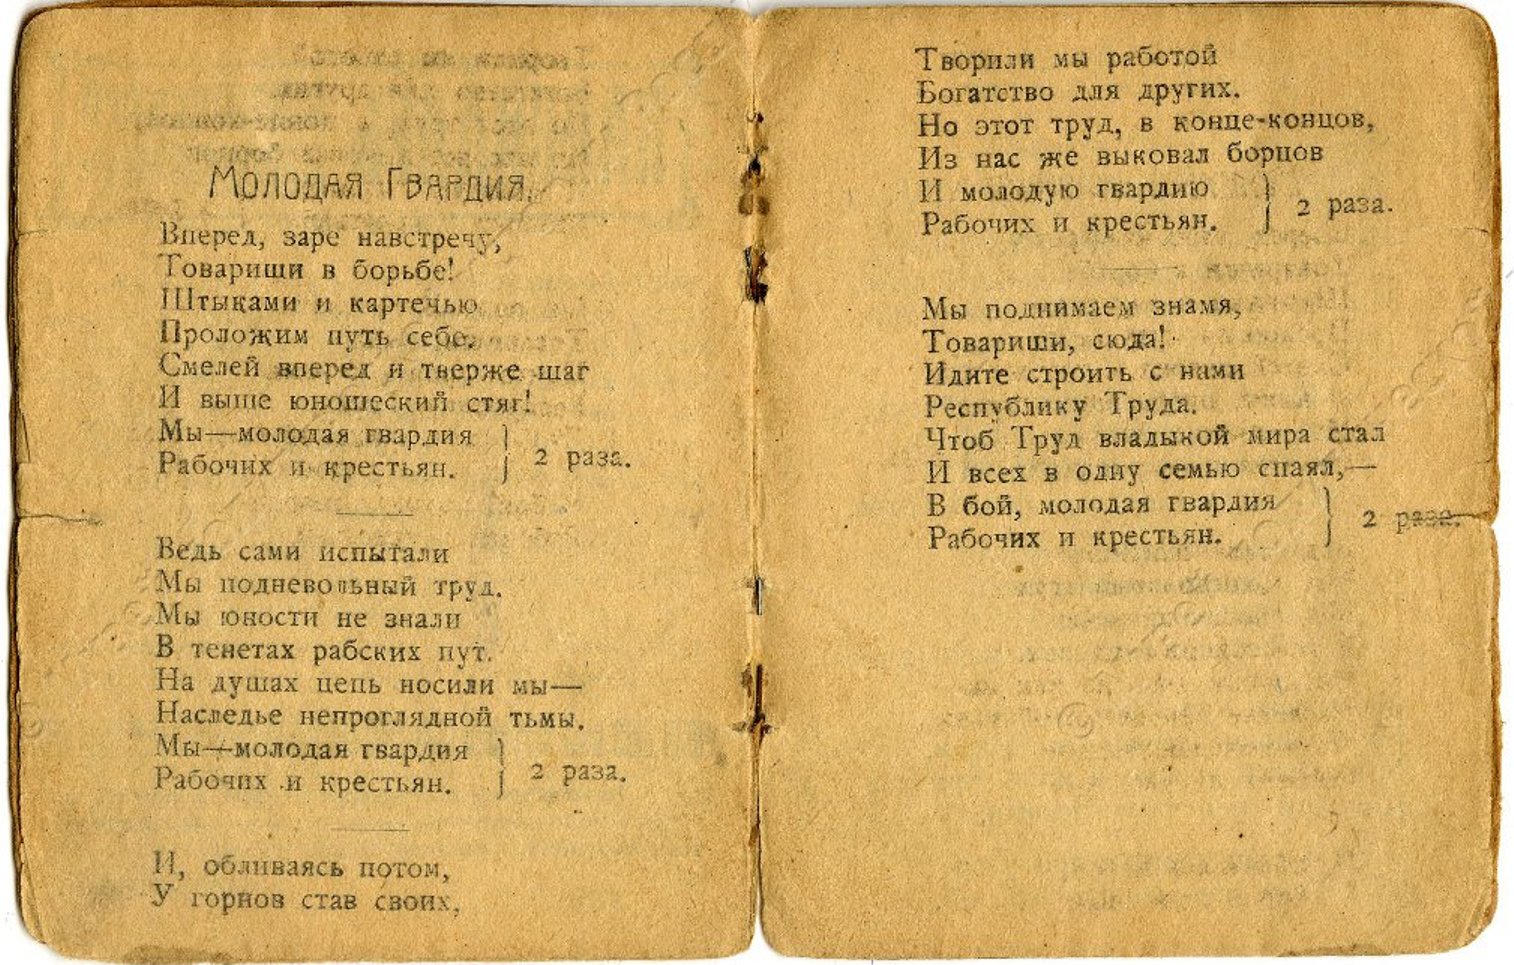 Молодая Гвардия.
Вперед, заре навстречу,
Товарищи в борьбе!
Штыками и картечью
Проложим путь себе.
Смелей вперед и тверже шаг
И выше юношеский стяг!
Мы—молодая гвардия
Рабочих и крестьян. } 2 раза.
Ведь сами испытали
Мы подневольный труд.
Мы юности не знали
В тенетах рабских пут.
На душах цепь носили мы—
Наследье непроглядной тьмы.
Мы—молодая гвардия
Рабочих и крестьян. } 2 раза.
И, обливаясь потом,
У горнов став своих,
Творили мы работой
Богатство для других.
Но этот труд, в конце-концов,
Из нас же выковал борцов
И молодую гвардию
Рабочих и крестьян. } 2 раза.
Мы поднимаем знамя,
Товарищи, сюда!
Идите строить с нами
Республику Труда.
Чтоб Труд владыкой мира стал
И всех в одну семью спаял,—
В бой, молодая гвардия
Рабочих и крестьян. } 2 раза.